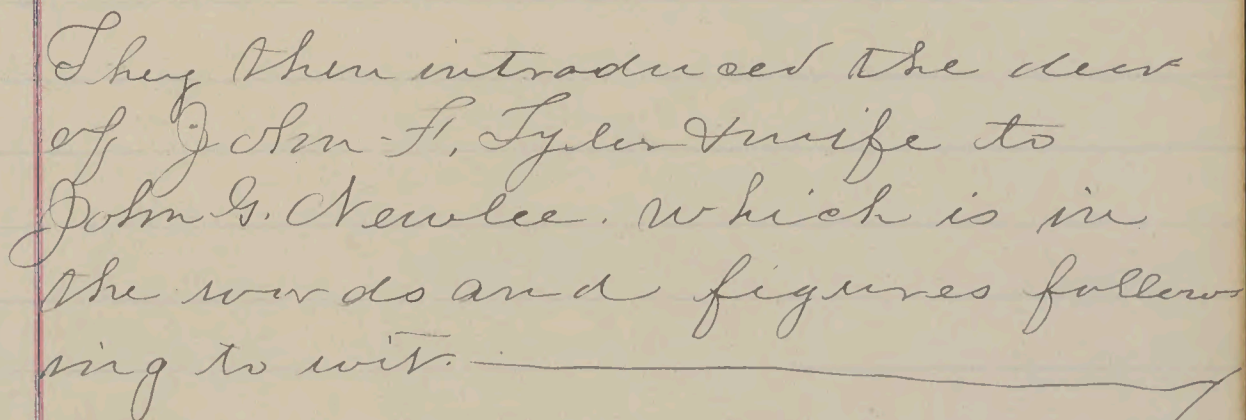 They then introduced the deed
of John F. Tyler & wife to
John G. Newlee. which is in
the words and figures follow
ing to wit.